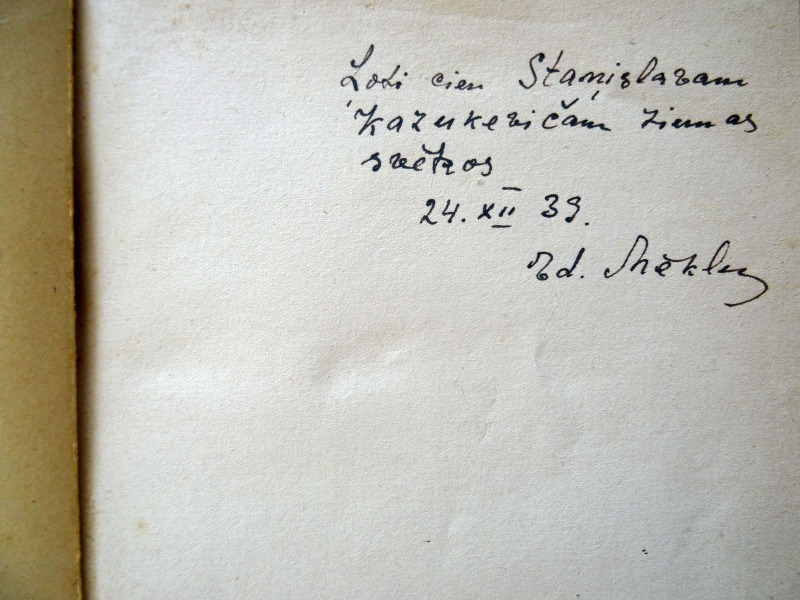 Ļoti cien Staņislavam
Kazukevičam Ziemas
svētkos
24. XII 39.
Ed. Mēkler